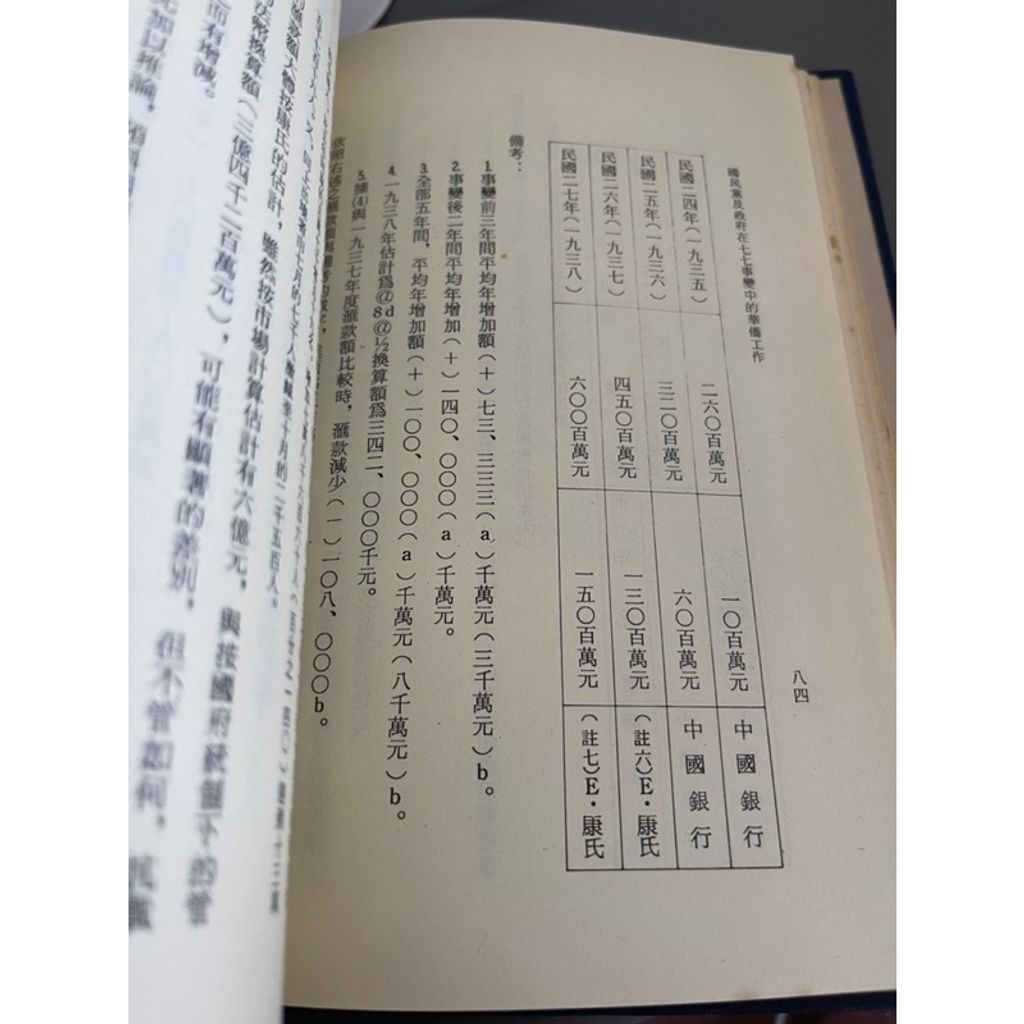 國民黨及政府在七七事變中的華僑工作
八四
民國二四年(一九三五) 二六〇百萬元 一〇百萬元 中國銀行
民國二五年(一九三六) 三二〇百萬元 六〇百萬元 中國銀行
民國二六年(一九三七) 四五〇百萬元 一三〇百萬元 (註六)E·康氏
民國二七年(一九三八) 六〇〇百萬元 一五〇百萬元 (註七)E·康氏
備考：
1.事變前三年間平均年增加額(十)七三、三三三(a)千萬元(三千萬元)b。
2.事變後二年間平均年增加(十)一四〇、〇〇〇(a)千萬元。
3.全部五年間，平均年增加額(十)一〇〇、〇〇〇(a)千萬元(八千萬元)b。
4.一九三八年估計為@d8@½換算額爲三四二、〇〇〇千元。
5.據(4)與一九三七年度滙款額比較時，滙款減少(一)一〇八、〇〇〇b。
的二千五百人。
大體按康氏的估計，雖然按市場計算估計有六億元，與按國府統制下的
換算額(三億四千二百萬元)，可能有顯著的差別，但不管如何，
而有增減。
加以推論，